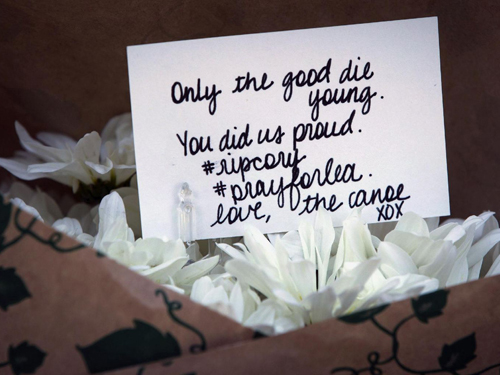 Only the good die
young.
You did us proud.
#ripcory
#prayforlea.
love, the canoe
xox